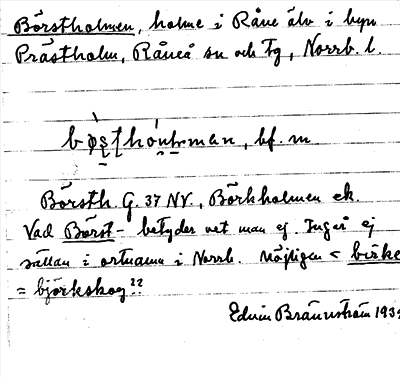 Börstholmen, holme i Råne älv i byn
Prästholm, Råneå sn och tg, Norrb. l.
bf. m.
Börsth. G. 37 NV., Börkholmen ek.
Vad Börst- betyder vet man ej. Ingå ej
sällan i ortnamn i Norrb. Möjligen < birke
= björkskog??
Edvin Brännström 193